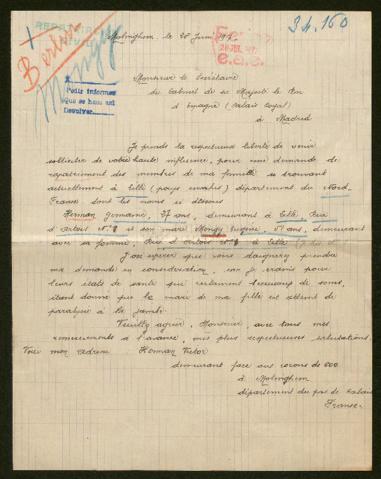 34.160
Berlin
Mongy
Pedir informes
que se han de
devolver
Molinghem, le 28 Juin 1917
Monsieur le Secrétaire
du Cabinet de sa Majesté le Roi
d'Espagne (Palais royal)
à Madrid
Je prends la respectueuse liberté de venir
solliciter de votre haute influence, pour une demande de
rapatriement des membres de ma famille se trouvant
actuellement à Lille (pays envahis) département du Nord,
France dont les noms ci dessous
Herman Germaine, 27 ans, demeurant à Lille, Rue
d'Artois N° 8 et son mari Mongy Eugène, 51 ans, demeurant
avec sa femme, Rue d'Artois N° 8 à Lille
J'ose espérer que vous daignerez prendre
ma demande en considération, car je crains pour
leurs états de santé que réclament beaucoup de soins,
étant donné que le mari de ma fille est atteint de
paralysie à la jambe
Veuillez agréer, Monsieur, avec tous mes
remerciements à l'avance, mes plus respectueuses salutations
Voici mon adresse Herman Victor
demeurant face aux corons de 000
à Molinghem
département du pas de Calais
France